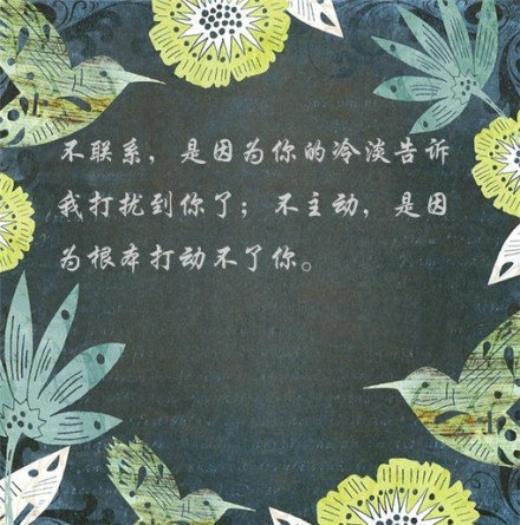 不联系，是因为你的冷淡告诉
我打扰到你了；不主动，是因
为根本打动不了你。